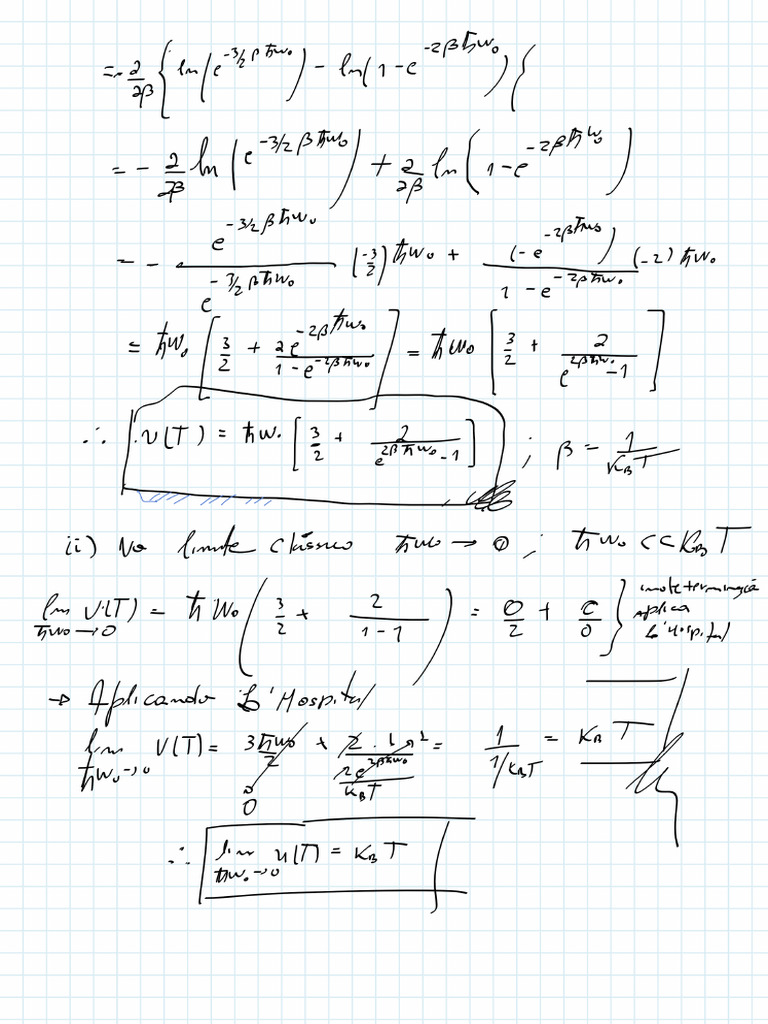 = -∂/∂β { ln(e^{-3/2 βħw₀}) - ln(1-e^{-2βħw₀}) }
= - ∂/∂β ln(e^{-3/2 βħw₀}) + ∂/∂β ln(1-e^{-2βħw₀})
= - e^{-3/2 βħw₀} / e^{-3/2 βħw₀} (-3/2) ħw₀ + (-e^{-2βħw₀}) / (1-e^{-2βħw₀}) (-2) ħw₀
= ħw₀ [ 3/2 + 2e^{-2βħw₀} / (1-e^{-2βħw₀}) ] = ħw₀ [ 3/2 + 2 / (e^{2βħw₀}-1) ]
∴ U(T) = ħw₀ [ 3/2 + 2 / (e^{2βħw₀}-1) ] ; β = 1/(K_B T)
ii) No limite clássico ħw₀ → 0 ; ħw₀ << K_B T
lim_{ħw₀→0} U(T) = ħw₀ ( 3/2 + 2/(1-1) ) = 0/2 + 0/0 } indeterminação aplica L'Hospital
→ Aplicando L'Hospital
lim_{ħw₀→0} U(T) = 3ħw₀/2 → 0 + 2 · 1 / (2e^{2βħw₀}/K_B T) = 1/(1/K_B T) = K_B T
∴ lim_{ħw₀→0} U(T) = K_B T